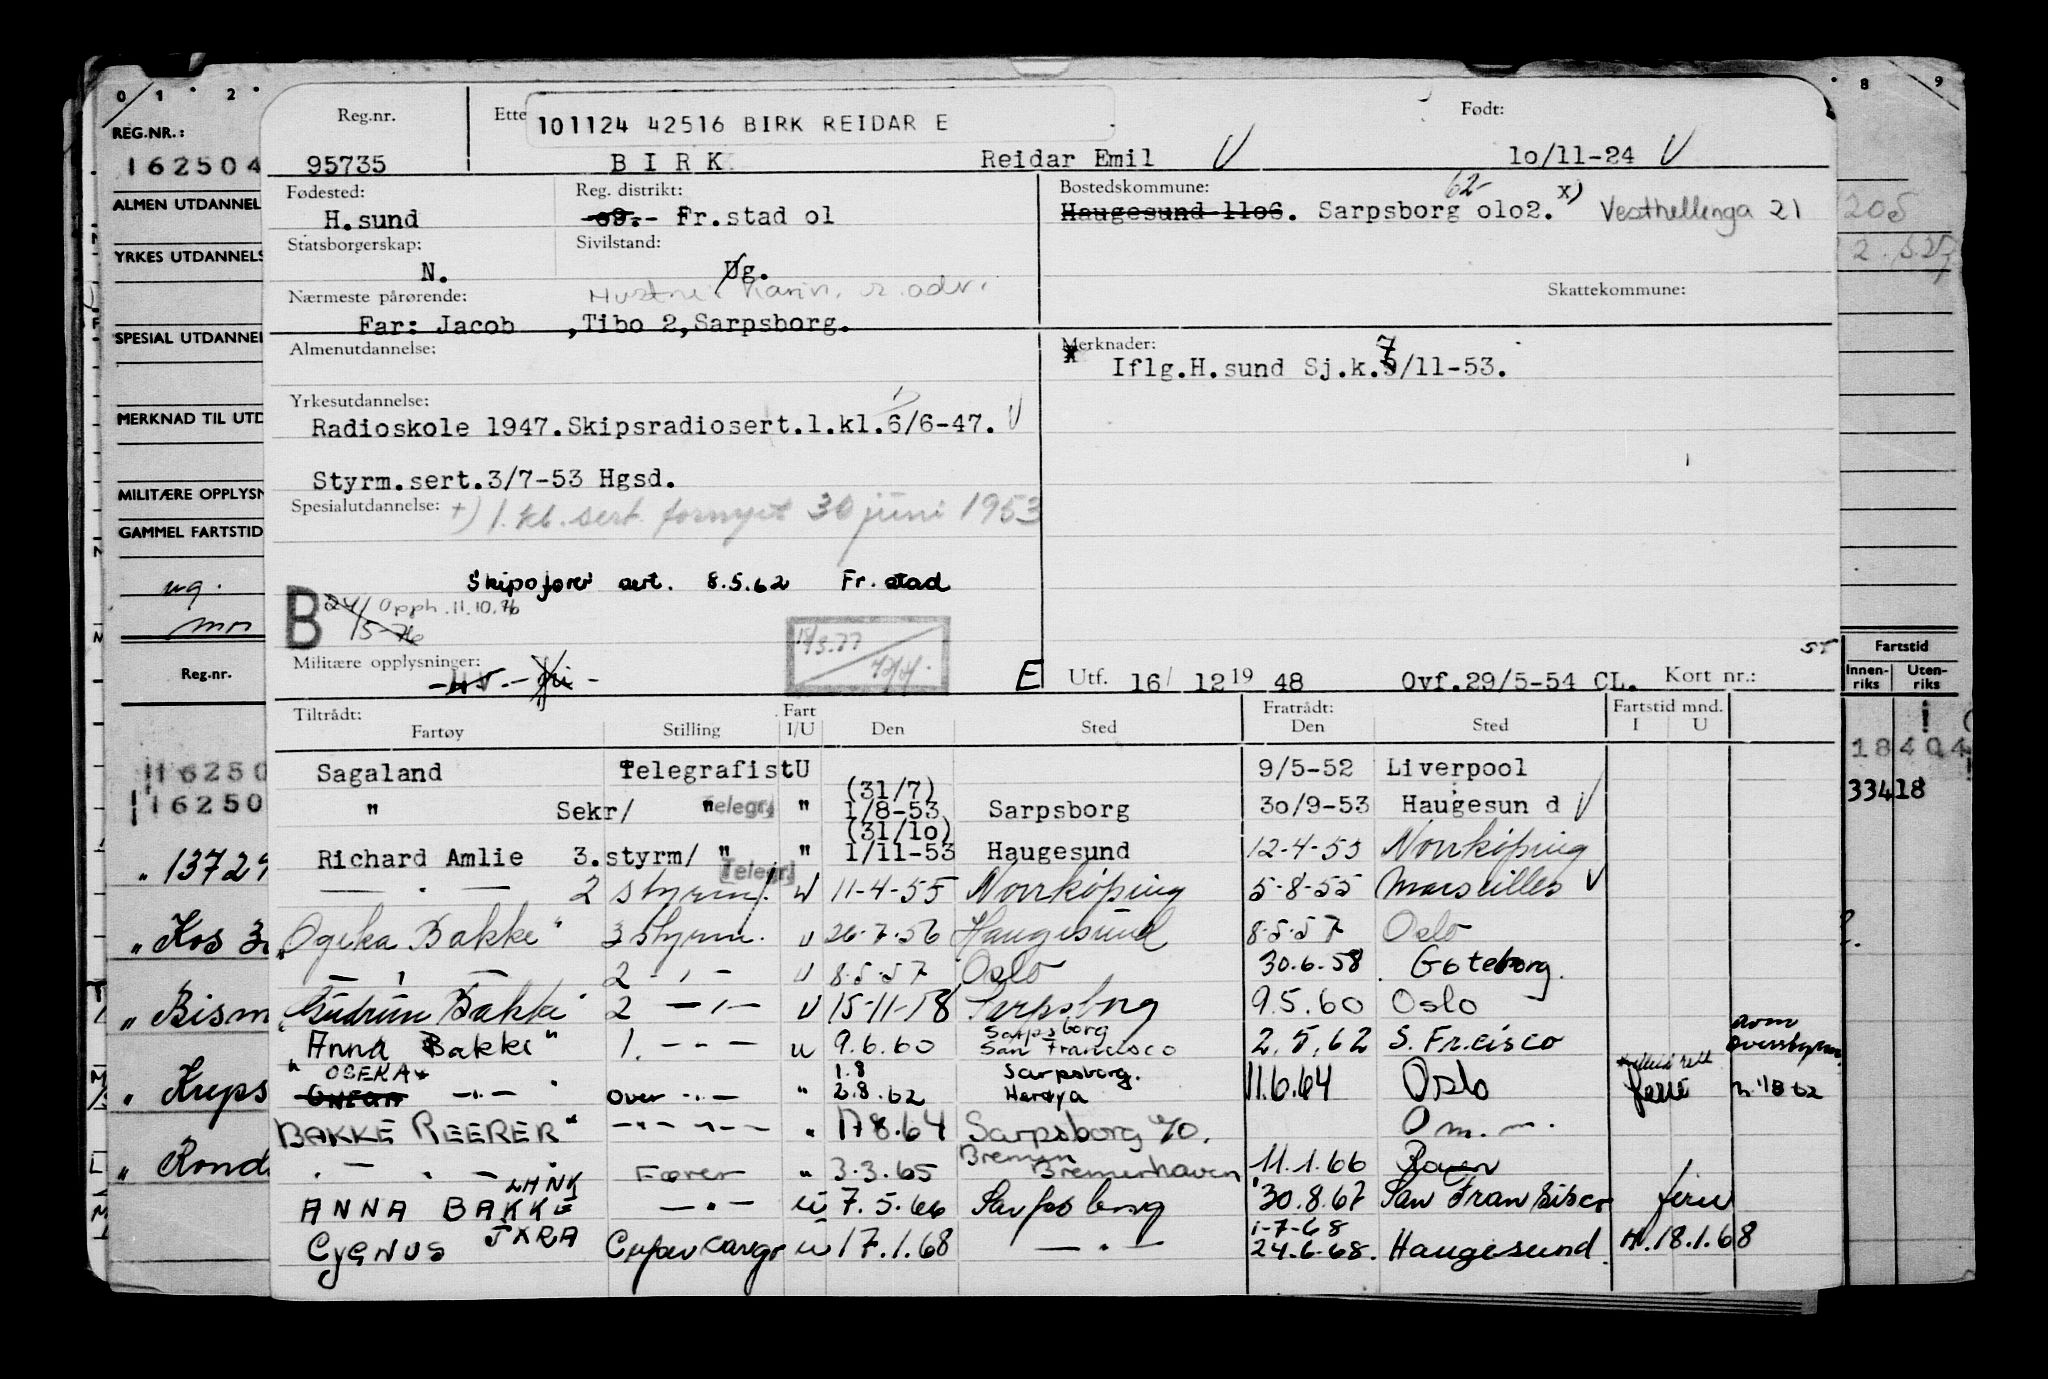 0 1 2 8 9
REG.NR.: Reg.nr. Ette 101124 42516 BIRK REIDAR E Født:
162504 95735 B I R K Reidar Emil V 10/11-24 V
ALMEN UTDANNEL Fødested: Reg. distrikt: Bostedskommune: 62- x)
H.sund 09.-- Fr.stad o1 Haugesund 11o6. Sarpsborg o1o2. Vesthellinga 21 205
YRKES UTDANNELS Statsborgerskap: Sivilstand:
N. Ug.
Nærmeste pårørende: Hustru: Karin, s. adr. Skattekommune:
Far: Jacob ,Tibo 2,Sarpsborg.
SPECIAL UTDANNEL Almenutdannelse: Merknader:
x Iflg.H.sund Sj.k.7/11-53.
MERKNAD TIL UTD Yrkesutdannelse:
Radioskole 1947.Skipsradiosert.1.kl.6/6-47. V
Styrm.sert.3/7-53 Hgsd.
MILITÆRE OPPLYSN Spesialutdannelse: +) 1. kl. sert. fornyet 30 juni 1953
GAMMEL FARTSTID
ug. Skipsfører sert. 8.5.62 Fr. stad
B 24/ Opph. 11.10.76
15-76
mor 15/3.77
Militære opplysninger: E Utf. 16/ 12 19 48 Ovf.29/5-54 CL. Kort nr.: Fartstid
Reg.nr. Innen-riks Uten-riks
Tiltrådt: Fart Fratrådt: Fartstid mnd.
Fartøy Stilling I/U Den Sted Den Sted I U
16250 Sagaland Telegrafist U 9/5-52 Liverpool 18404
(31/7)
16250 " Sekr/ " Telegr. " 1/8-53 Sarpsborg 30/9-53 Haugesun d V 33418
(31/10)
" 13729 Richard Amlie 3.styrm/ " Telegr. " 1/11-53 Haugesund 12-4-55 Norrköping
— " — 2 styrm/. U 11-4-55 Norrköping 5-8-55 Marseilles V
" Kos "Ogeka Bakke" 3 styrm. U 26-7-56 Haugesund 8-5-57 Oslo
— " — 2 — " — U 8-5-57 Oslo 30.6.58 Göteborg.
" Bism "Gudrun Bakke" 2 — " — U 15-11-58 Sarpsborg 9.5.60 Oslo
"Anna Bakke" 1. — " — u 9.6.60 Sarpsborg San Francisco 2.5.62 S. Fr.cisco
" OGEKA 1.8 Sarpsborg.
" Kreps — " — Over — " — " 2.8.62 Herøya 11.6.64 Oslo ferie n. 1/8 62
BAKKE REEFER" — " — " — " 17.8.64 Sarpsborg O m. m.
" Rond — " — Fører " 3.3.65 Bremen Bremerhaven 11.1.66
ANNA BAKKE — " — u 7.5.66 Sarpsborg 30.8.67 San Fransisco ferie
1-7-68
CyGNUS u 17.1.68 — " — 24.6.68. Haugesund m. 18.1.68